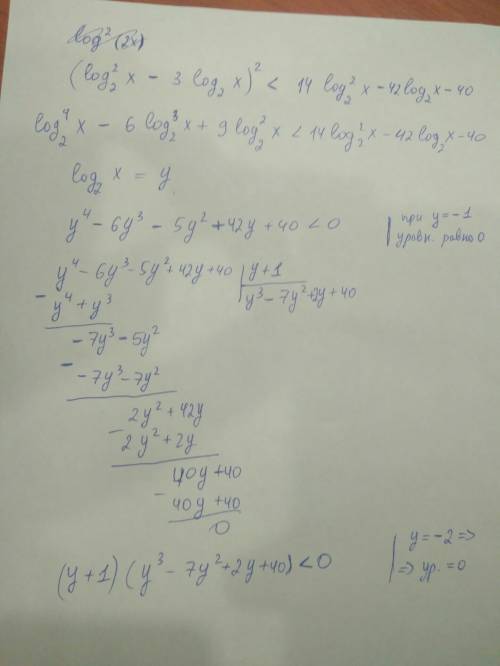 log² (2x)
(log₂² x - 3 log₂ x)² < 14 log₂² x - 42 log₂ x - 40
log₂⁴ x - 6 log₂³ x + 9 log₂² x < 14 log₂² x - 42 log₂ x - 40
log₂ x = y
y⁴ - 6y³ - 5y² + 42y + 40 < 0 | при y = -1
уравн. равно 0
y⁴ - 6y³ - 5y² + 42y + 40 | y + 1
- y⁴ + y³ | y³ - 7y² + 2y + 40
- 7y³ - 5y²
- -7y³ - 7y²
2y² + 42y
- 2y² + 2y
40y + 40
- 40y + 40
0
(y + 1) (y³ - 7y² + 2y + 40) < 0 | y = -2 =>
=> ур. = 0